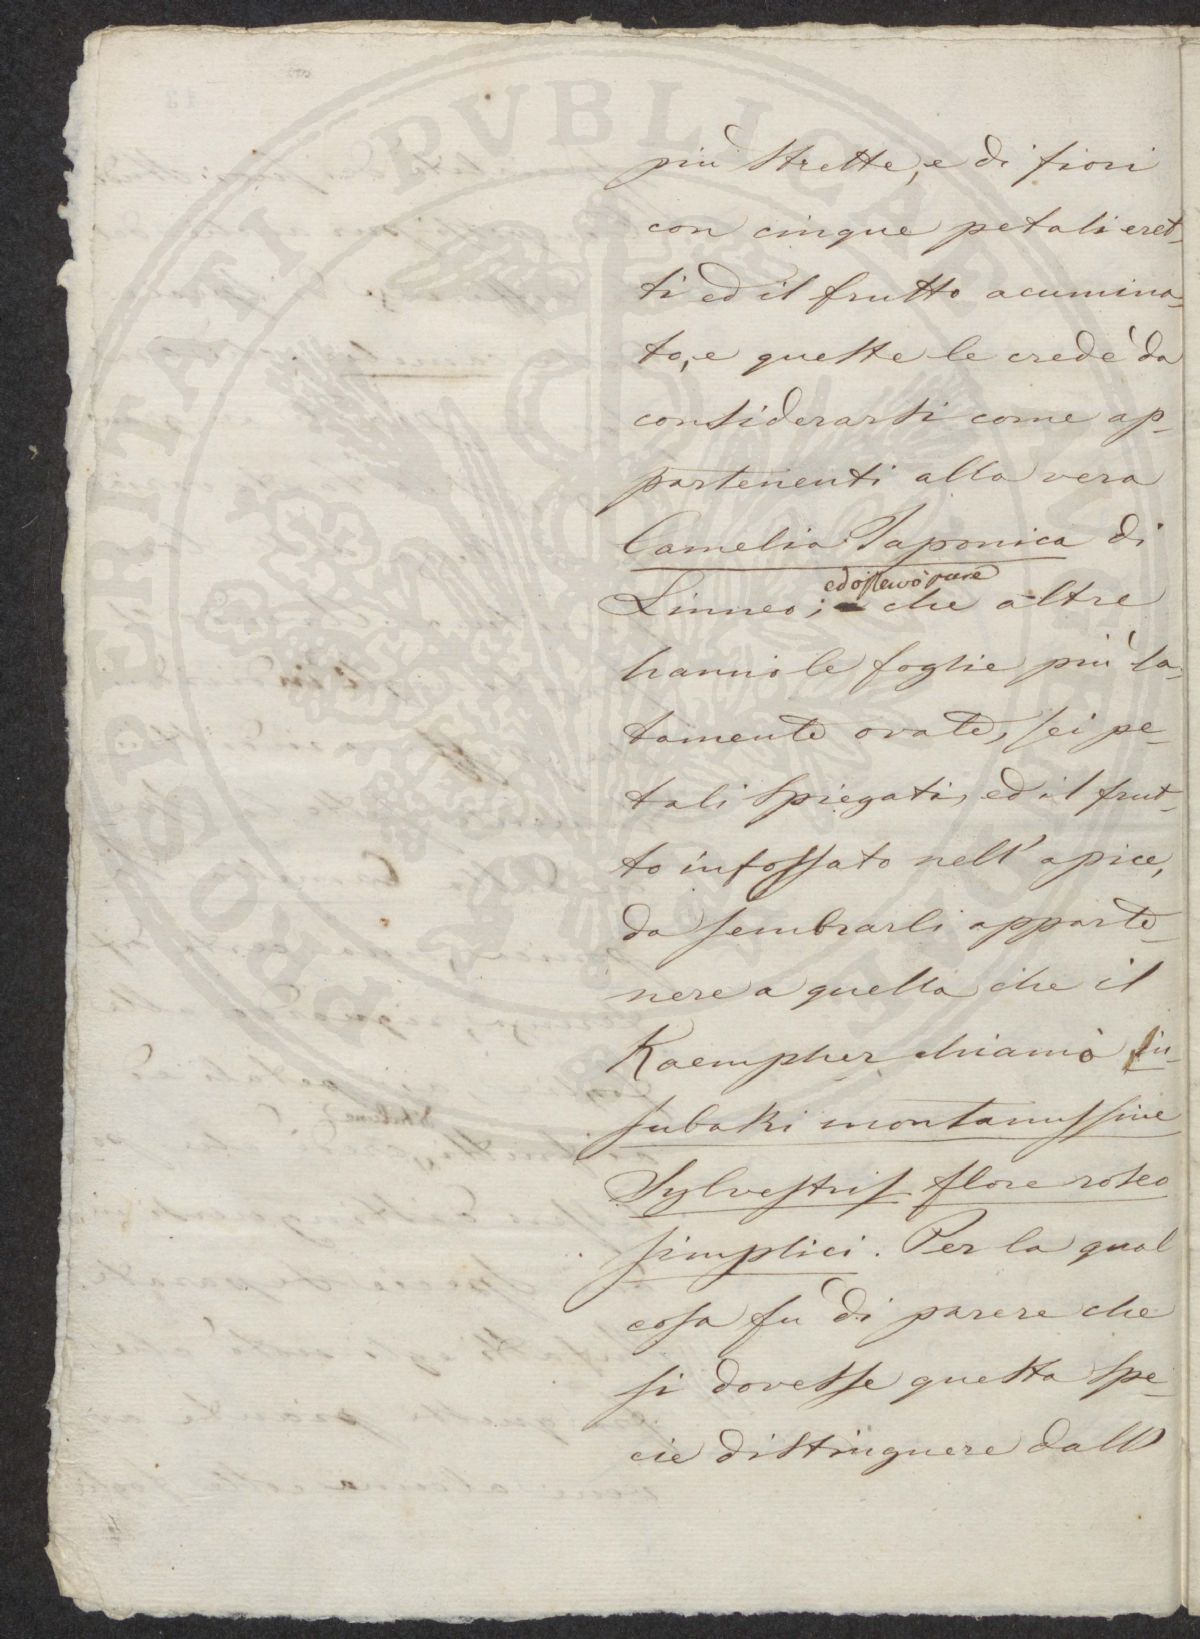 più strette, e di fiori
con cinque petali eret-
ti ed il frutto acumina-
to, e queste le crede da
considerarsi come ap-
partenenti alla vera
Camelia Japonica di
ed osservò pure
Linneo; che altre
hanno le foglie più la-
tamente ovate, sei pe-
tali spiegati, ed il frut-
to infossato nell' apice,
da sembrarli apparte-
nere a quella che il
Kaempher chiamò
subaki montanus sive
Sylvestris flore roseo
simplici. Per la qual
cosa fu di parere che
si dovesse questa spe-
cie distinguere dall'
PROSPERITATI PVBLICAE